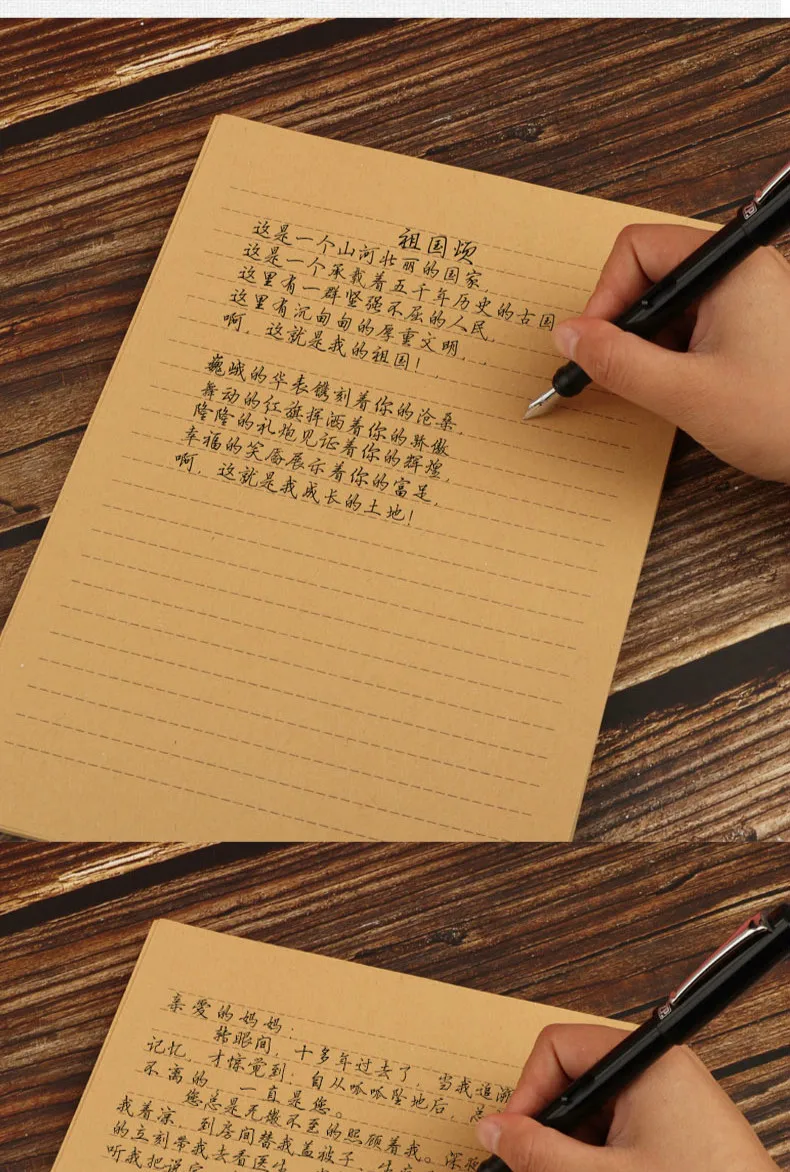 祖国颂
这是一个山河壮丽的国家,
这是一个承载着五千年历史的古国
这里有一群坚强不屈的人民,
这里有沉甸甸的厚重文明,
啊, 这就是我的祖国!
巍峨的华表镌刻着你的沧桑,
舞动的红旗挥洒着你的骄傲
隆隆的礼炮见证着你的辉煌,
幸福的笑靥展示着你的富足,
啊, 这就是我成长的土地!
亲爱的妈妈:
转眼间, 十多年过去了, 当我追溯
记忆, 才惊觉到, 自从呱呱坠地后,
不离的 一直是您。
您总是无微不至的照顾着我。深夜
我着凉, 到房间替我盖被子, 生
的立刻带我去看医生
听我把说完